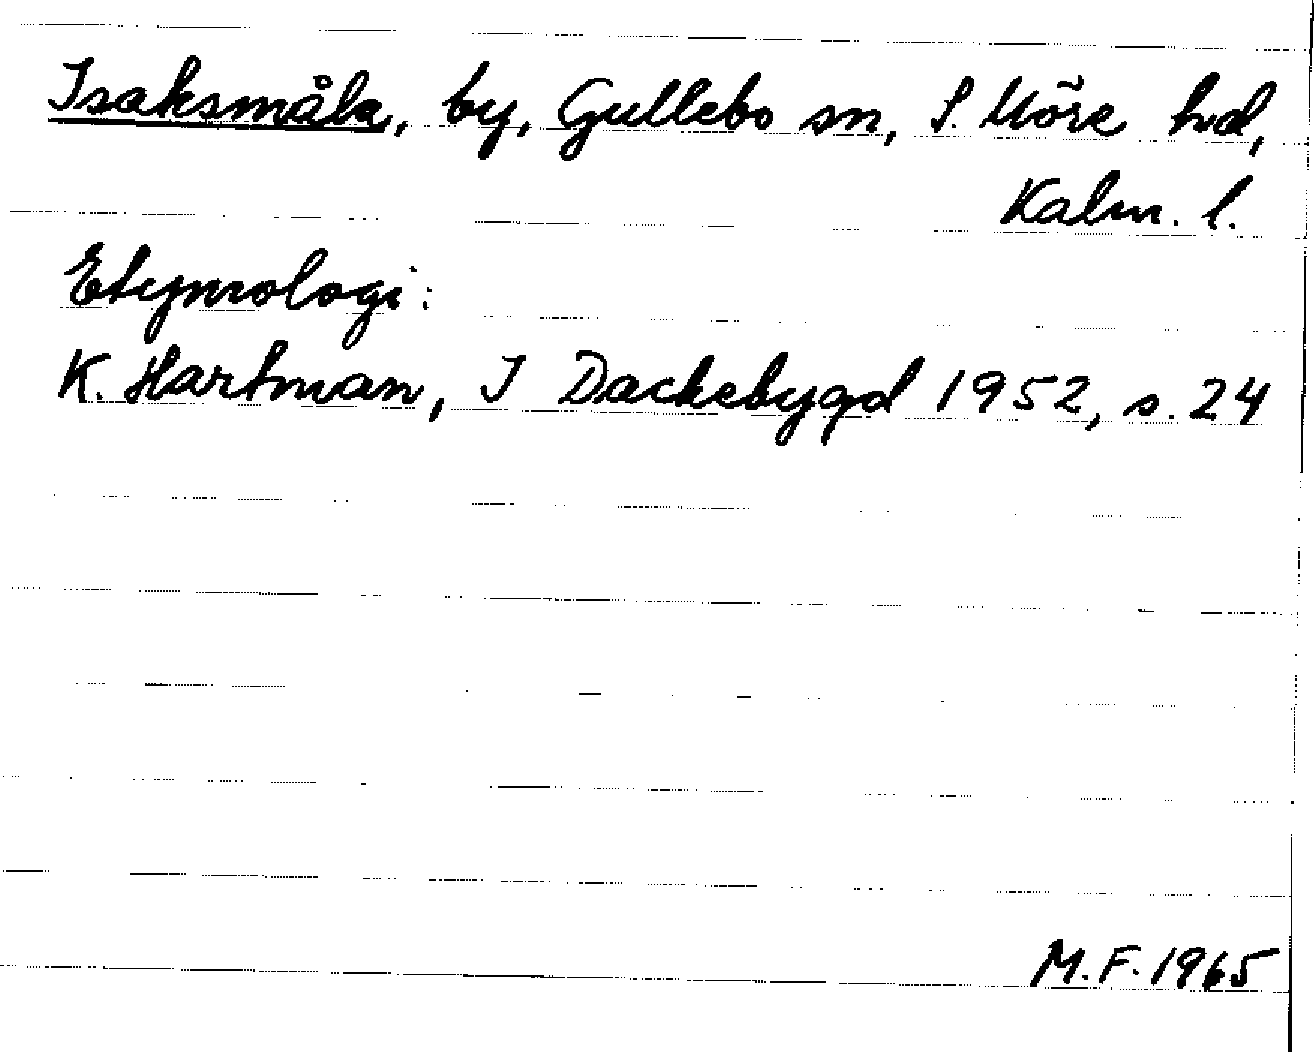 Isaksmåla, by, Gullebo sn, S. Möre hd,
Kalm. l.
Etymologi:
K. Hartman, I Dackebygd 1952, s. 24
M.F. 1965